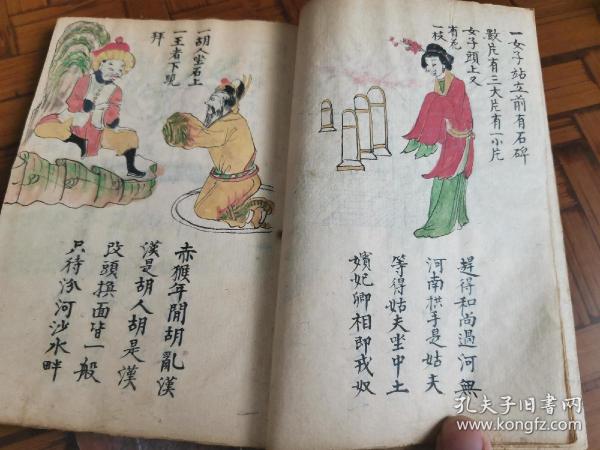 一女子站立前有石碑
數片有三大片有一小片
女子頭上又
有花
一枝
趕得和尚過河無
河南拱手是姑夫
等得姑夫坐中土
嬪妃卿相即我奴
一胡人坐石上
一王者下跪
拜
赤猴年間胡亂漢
漢是胡人胡是漢
改頭換面皆一般
只待汾河沙水畔
孔夫子旧书网
www.kongfz.com